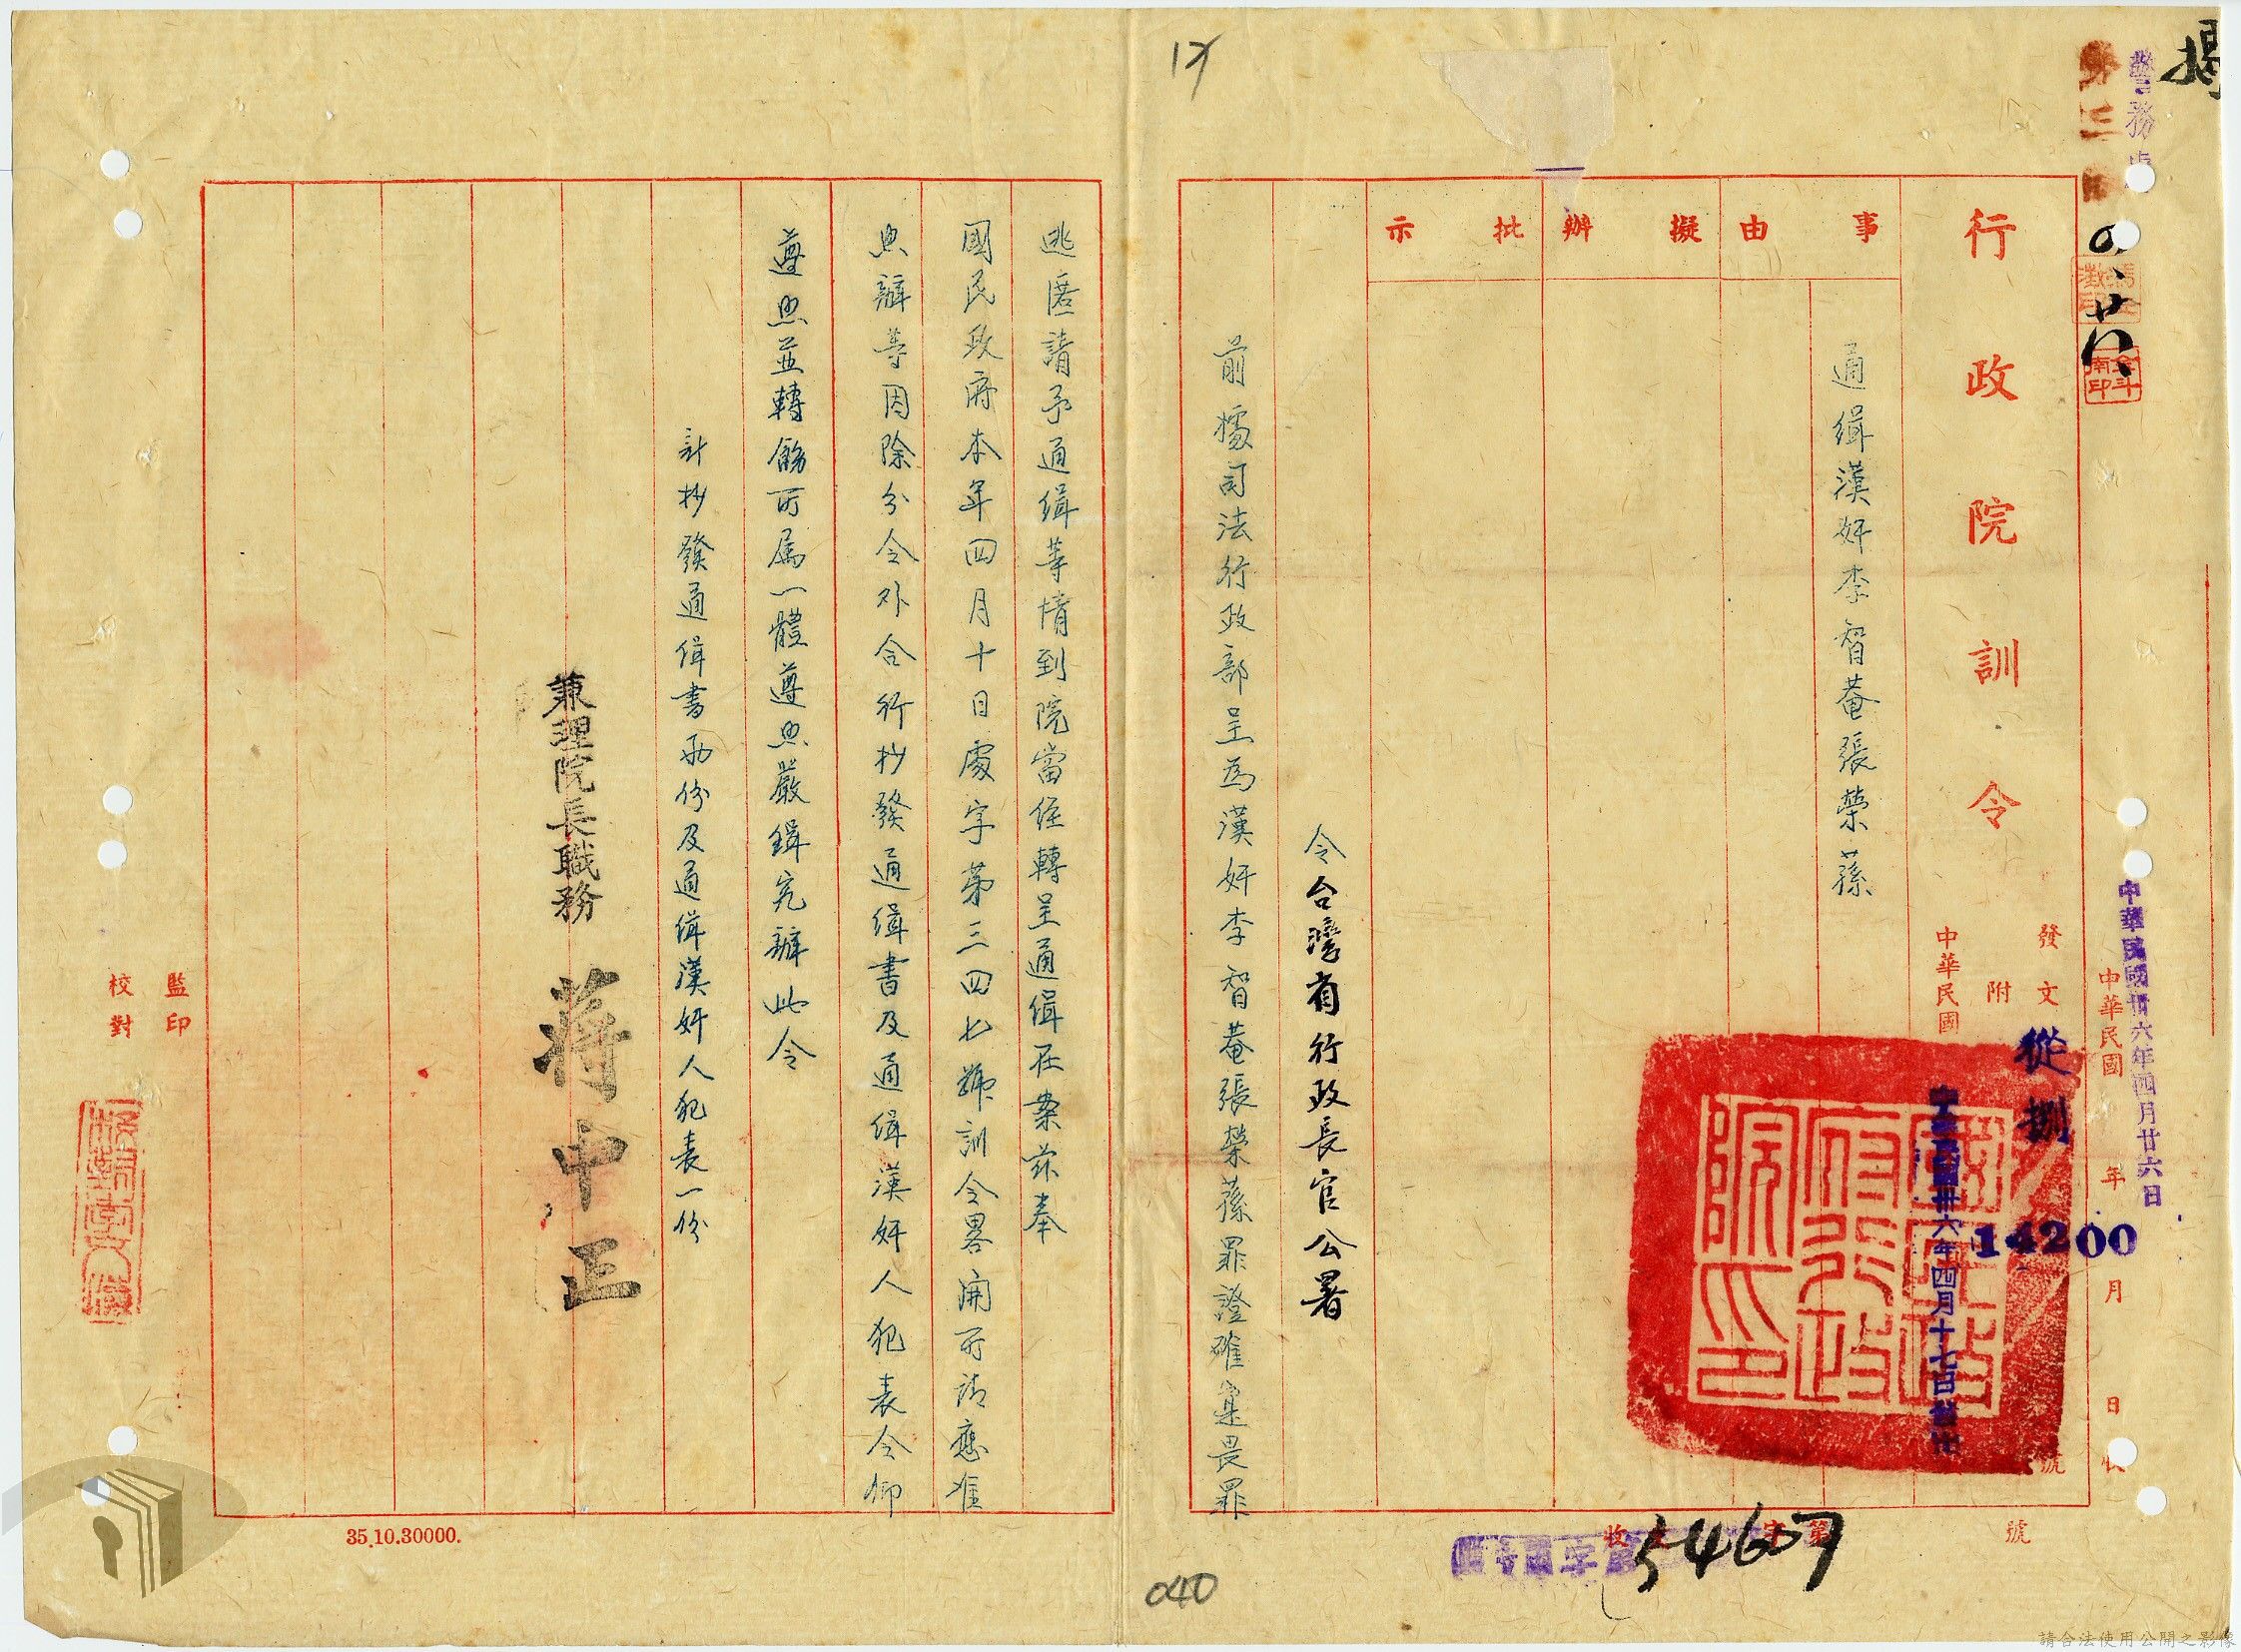 警務處
中華民國卅六年四月廿六日
中華民國 年 月 日
四、廿八、
行政院訓令
發文 號
從捌
14200
附
中華民國
中華民國卅六年四月十七日
國民政府行政院印
事由
擬辦
批示
通緝漢奸李智菴張榮蓀
令台灣省行政長官公署
前據司法行政部呈為漢奸李智菴張榮蓀罪證確寔畏罪
逃匿請予通緝等情到院當經轉呈通緝在案茲奉
國民政府本年四月十日處字第三四七號訓令畧開所請應准
照辦等因除分令外合行抄發通緝書及通緝漢奸人犯表令仰
遵照並轉飭所属一體遵照嚴緝究辦此令
計抄發通緝書兩份及通緝漢奸人犯表一份
兼理院長職務 蔣中正
監印
校對
收 字第 號
54607
35.10.30000.
17
040
請合法使用公開之影像